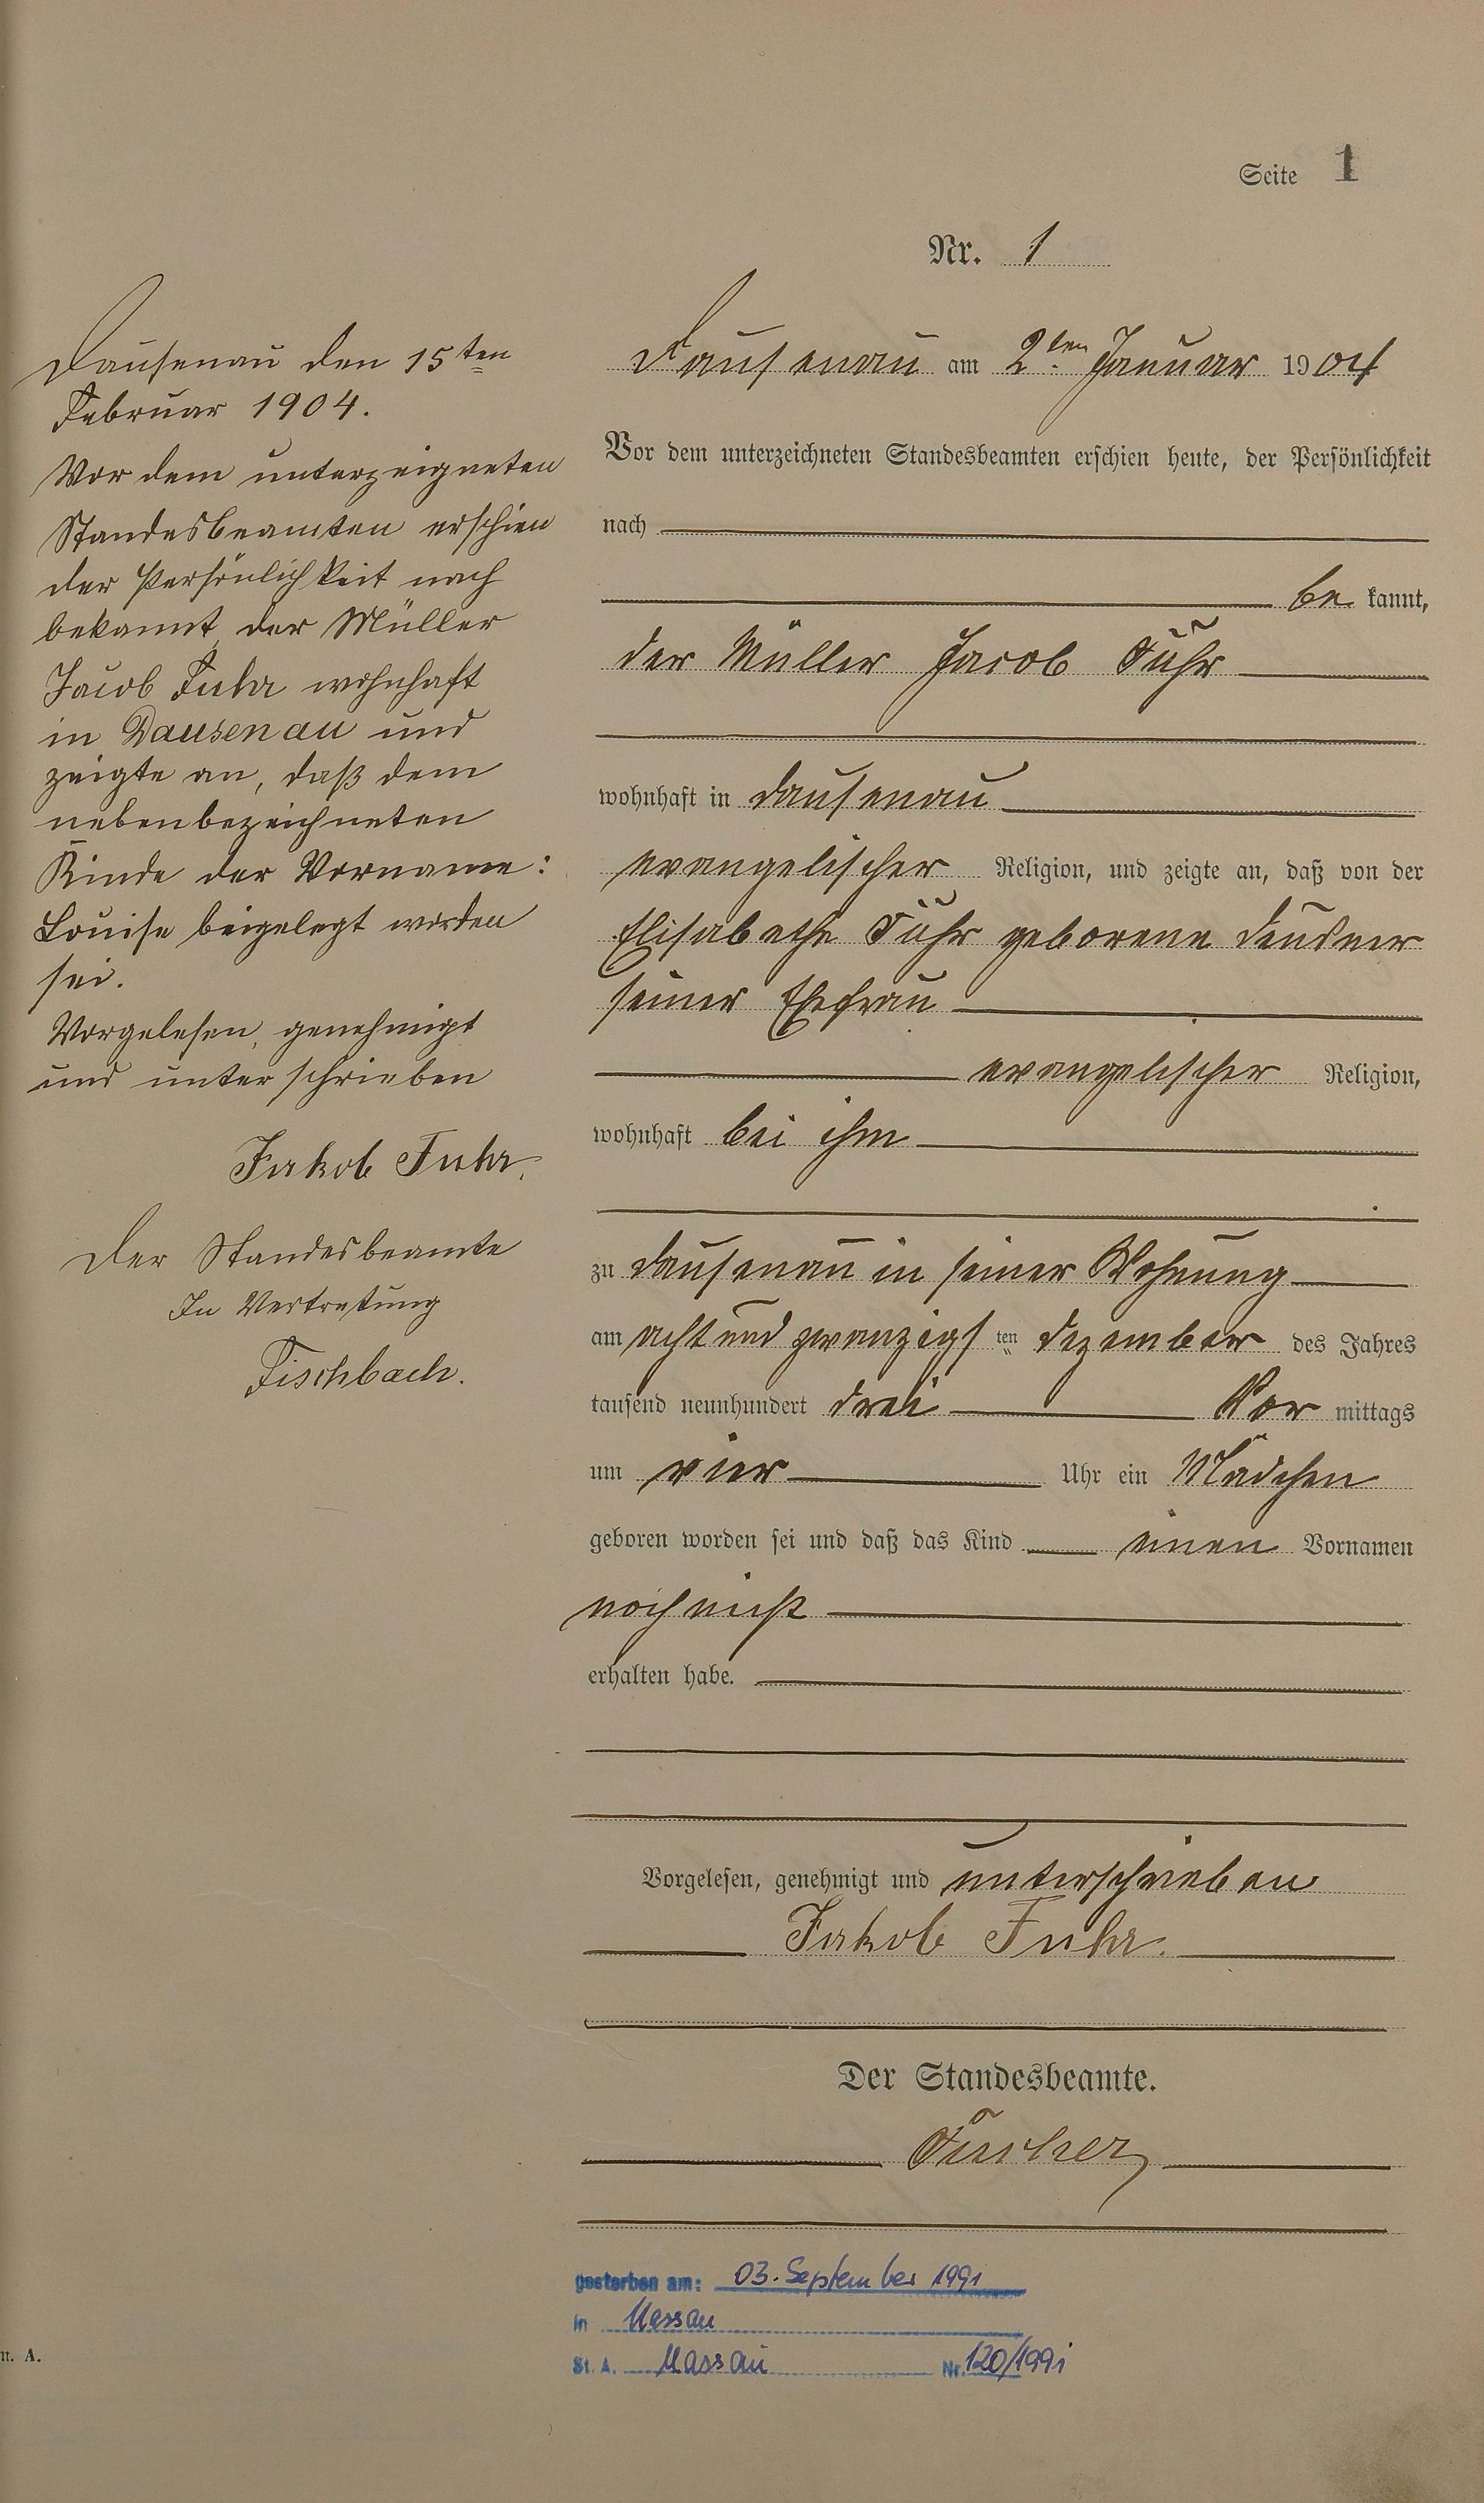 Seite 1
Nr. 1
Dausenau den 15ten
Februar 1904.
Vor dem unterzeigneten
Standesbeamten erschien
der Persönlichkeit nach
bekannt, der Müller
Jacob Fuhr wohnhaft
in Dausenau und
zeigte an, daß dem
nebenbezeichneten
Kinde der Vorname:
Louise beigelegt worden
sei.
Vorgelesen, genehmigt
und unterschrieben
Jakob Fuhr.
Der Standesbeamte
In Vertretung
Fischbach.
Dausenau am 2ten Januar 1904
Vor dem unterzeichneten Standesbeamten erschien heute, der Persönlichkeit
nach
be kannt,
der Müller Jacob Fuhr
wohnhaft in Dausenau
evangelischer Religion, und zeigte an, daß von der
Elisabethe Fuhr geborene
seiner Ehefrau
evangelischer Religion,
wohnhaft bei ihm
zu Dausenau in seiner Wohnung
am acht und zwanzigsten Dezember des Jahres
tausend neunhundert drei Vor mittags
um vier Uhr ein Mädchen
geboren worden sei und daß das Kind einen Vornamen
noch nicht
erhalten habe.
Vorgelesen, genehmigt und unterschrieben
Jakob Fuhr.
Der Standesbeamte.
gestorben am: 03. September 1991
in Nassau
St. A. Nassau Nr. 120/1991
n. A.